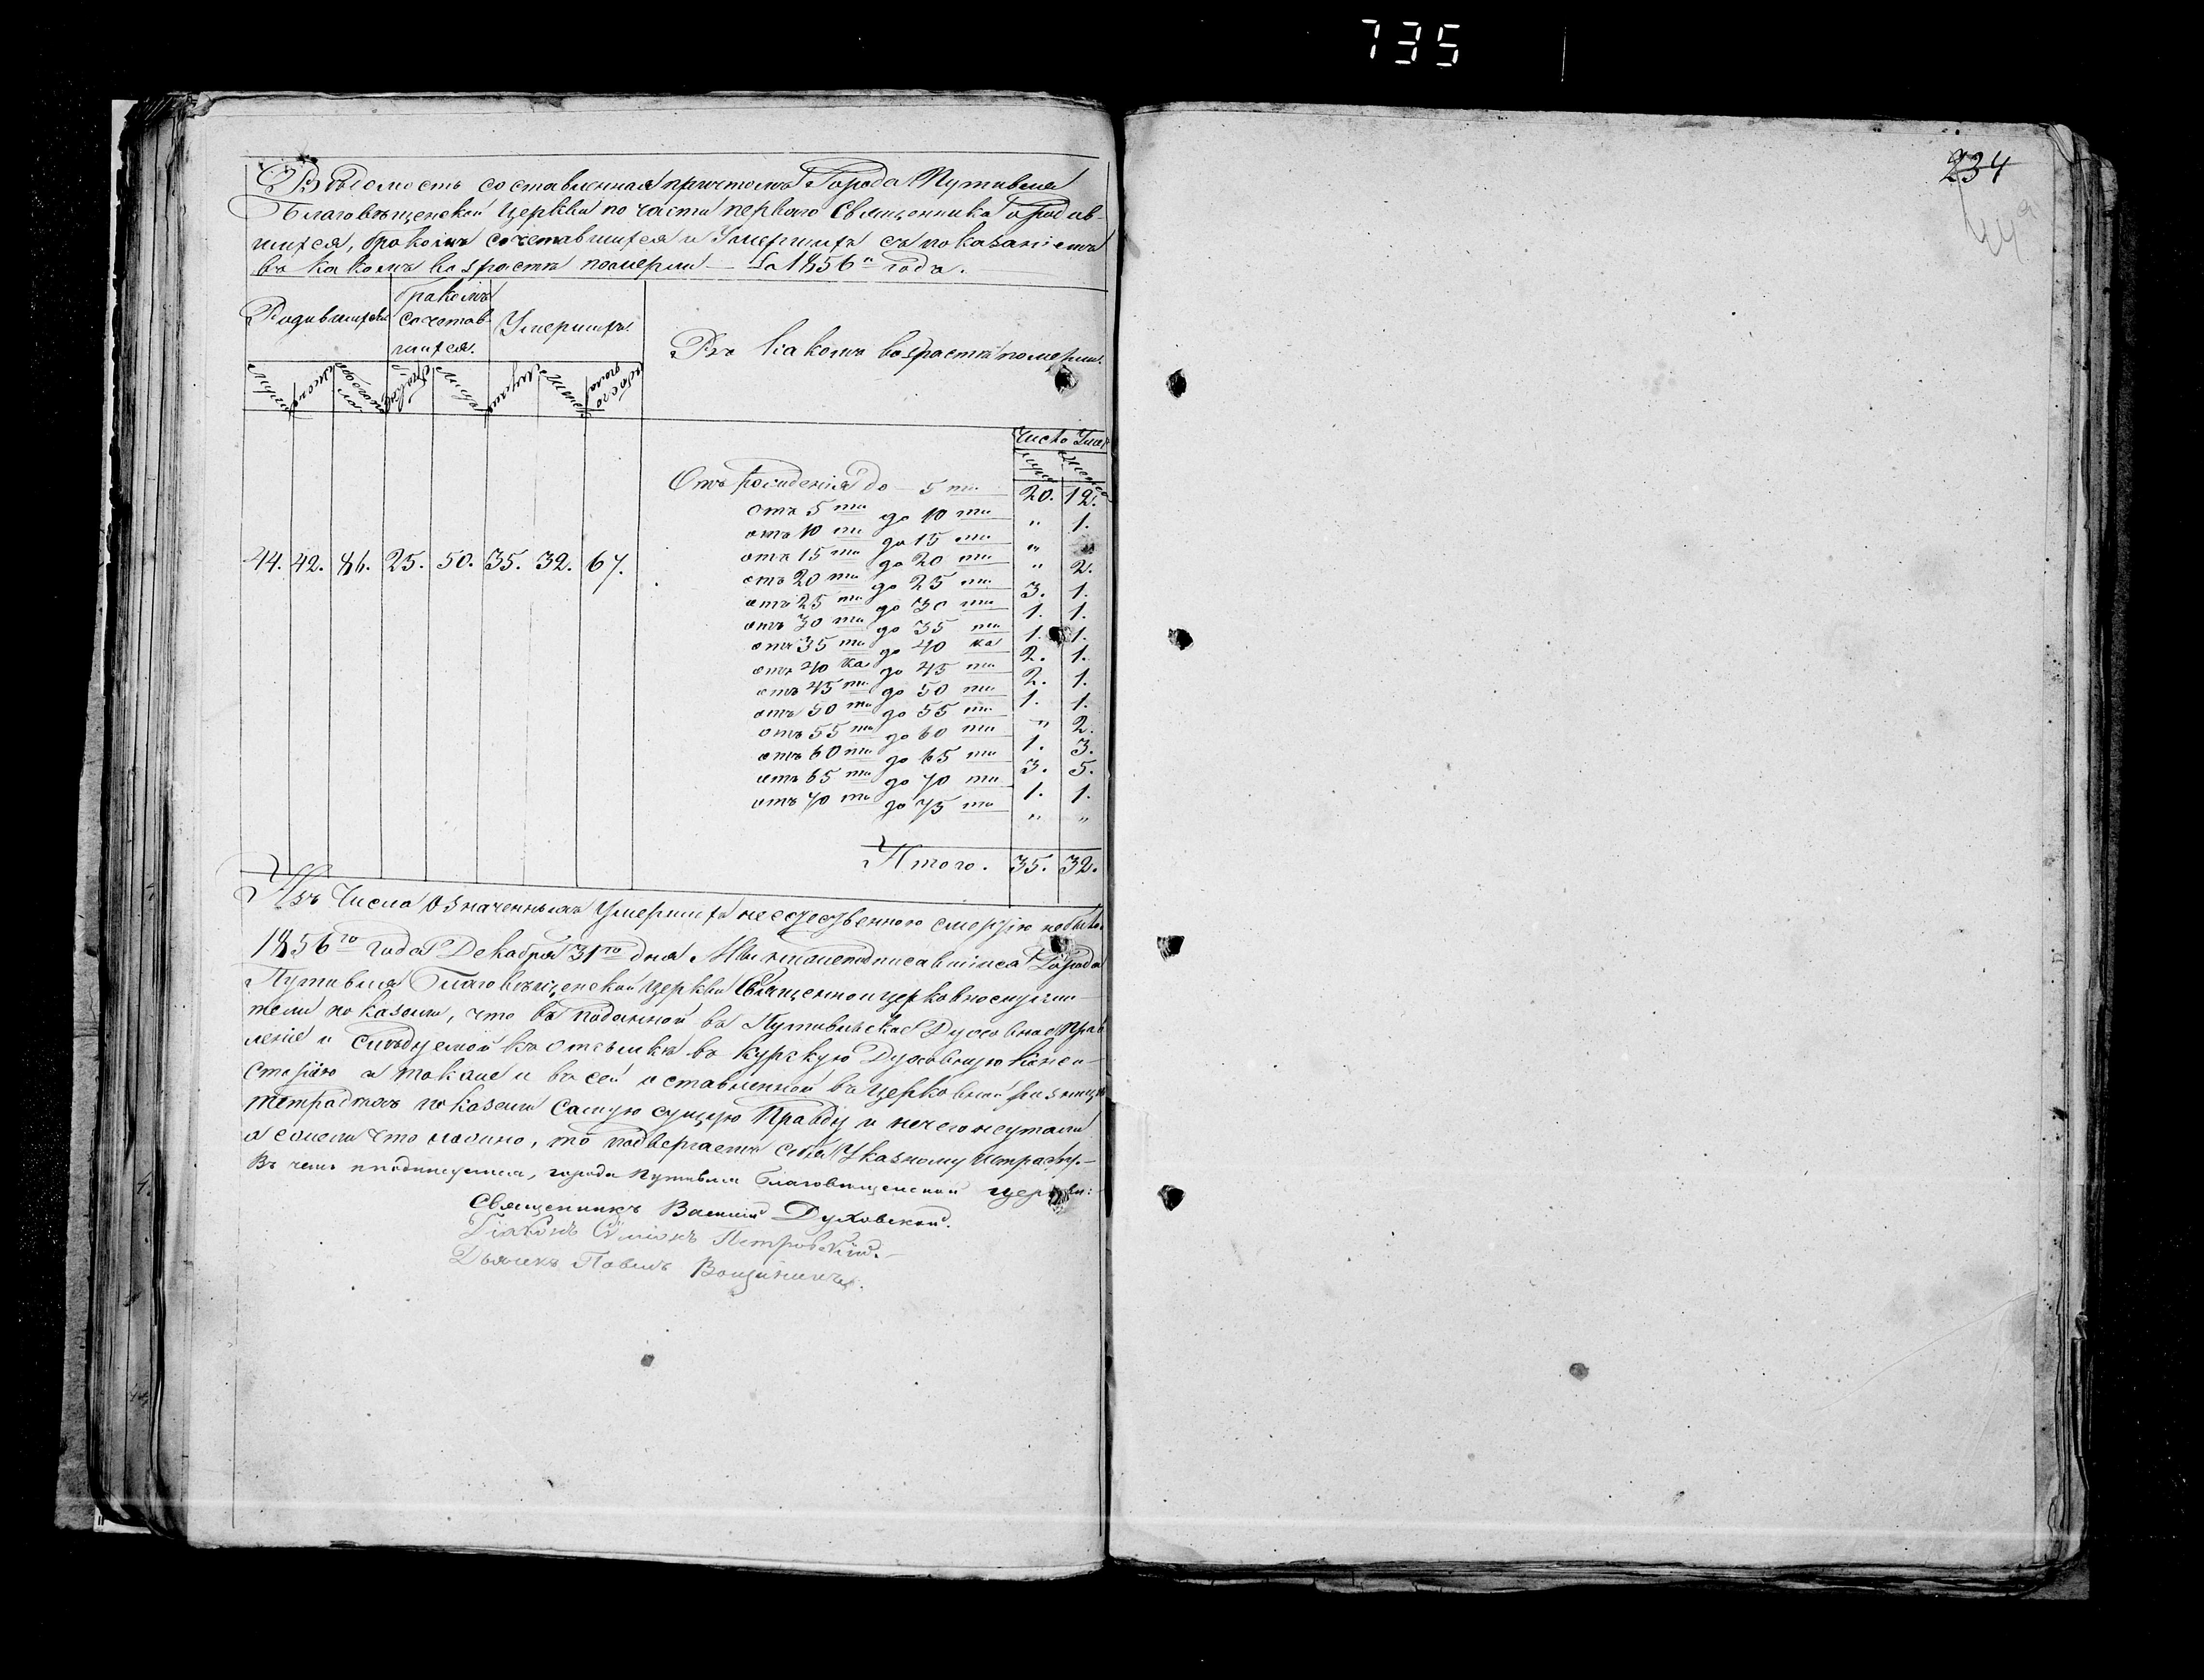 735
234
Вѣдомость составленная причтомъ Города Путивля
Благовѣщенской Церкви по части перваго Священника о родив-
шихся, бракомъ сочетавшихся и Умершихъ съ показаніемъ
въ какомъ возрастѣ померли — За 1856й годъ.
Родившихся
бракомъ сочетав-шихся.
Умершихъ.
Въ какомъ возрастѣ померли.
мужес женск обоего пола браков лицъ мужес женск обоего пола
Число Умер
муж женск
Отъ рожденія до 5 ти 20. 12.
отъ 5 ти до 10 ти " 1.
отъ 10 ти до 15 ти " "
отъ 15 ти до 20 ти " 2.
отъ 20 ти до 25 ти 3. 1.
отъ 25 ти до 30 ти 1. 1.
отъ 30 ти до 35 ти 1. 1.
отъ 35 ти до 40 ка 2. 1.
отъ 40 ка до 45 ти 2. 1.
отъ 45 ти до 50 ти 1. 1.
отъ 50 ти до 55 ти " 2.
отъ 55 ти до 60 ти 1. 3.
отъ 60 ти до 65 ти 3. 5.
отъ 65 ти до 70 ти 1. 1.
отъ 70 ти до 75 ти " "
44. 42. 86. 25. 50. 35. 32. 67.
Итого. 35. 32.
Изъ Числа означенныхъ Умершихъ неестественною смертію небыло.
1856го года Декабря 31го дня Мы нижеподписавшіися Города
Путивля Благовѣщенской Церкви Священноцерковнослужи-
тели показали, что въ поданной въ Путивльское Духовное Прав
леніе и слѣдуемой къ отсылкѣ въ Курскую Духовную Конси-
сторію а также и въ сей оставленной въ церковной ризницѣ
тетрадяхъ показали самую сущую Правду и ничего неутаили
а ежели что ложно, то подвергаемъ себя Указному штрафу.—
Въ чемъ и подпишемся, города Путивля Благовѣщенской церкви:
Священникъ Василій Духовской.
Діаконъ Симіонъ Петровскій.
Дьячекъ Павелъ